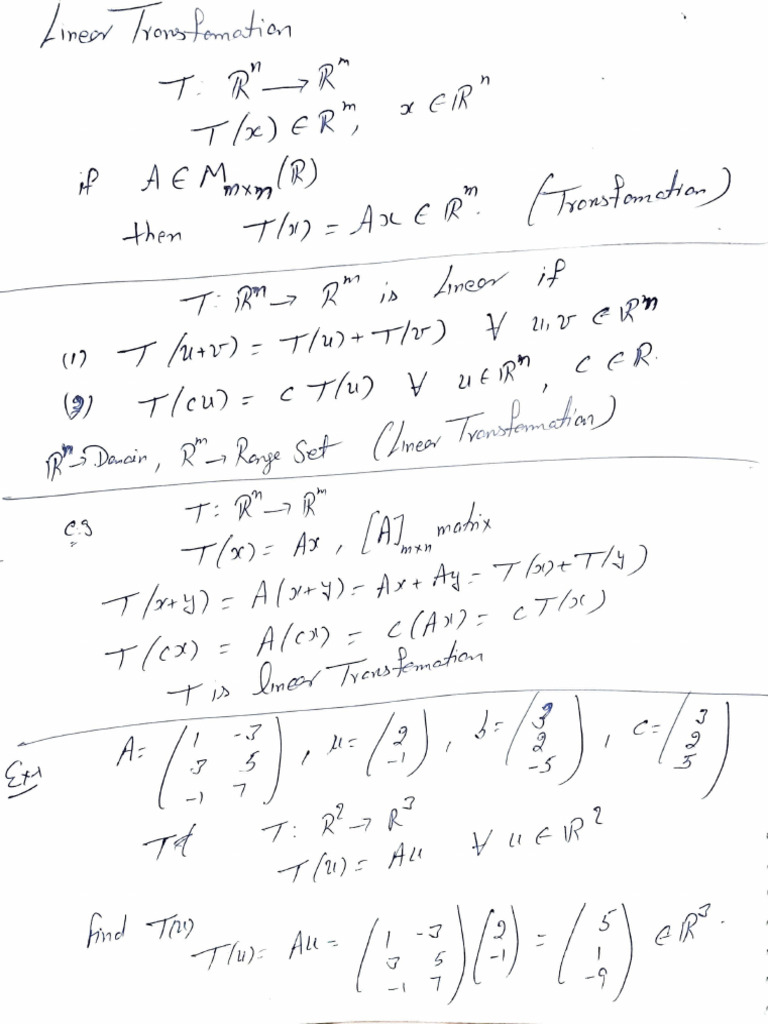 Linear Transfomation
T: ℝⁿ → ℝᵐ
T(x) ∈ ℝᵐ, x ∈ ℝⁿ
if A ∈ M_{m×n}(ℝ)
then T(x) = Ax ∈ ℝᵐ. (Transfomation)
T: ℝⁿ → ℝᵐ is Linear if
(1) T(u+v) = T(u) + T(v) ∀ u, v ∈ ℝⁿ
(2) T(cu) = c T(u) ∀ u ∈ ℝⁿ, c ∈ ℝ.
ℝⁿ → Domain, ℝᵐ → Range Set (Linear Transformation)
e.g T: ℝⁿ → ℝᵐ
T(x) = Ax, [A]_{m×n} matrix
T(x+y) = A(x+y) = Ax + Ay = T(x) + T(y)
T(cx) = A(cx) = c(Ax) = cT(x)
T is linear Transfomation
Ex-1 A = (1 -3; 3 5; -1 7), u = (2; -1), b = (3; 2; -5), c = (3; 2; 5)
T: ℝ² → ℝ³
T(u) = Au ∀ u ∈ ℝ²
find T(u)
T(u) = Au = (1 -3; 3 5; -1 7)(2; -1) = (5; 1; -9) ∈ ℝ³.